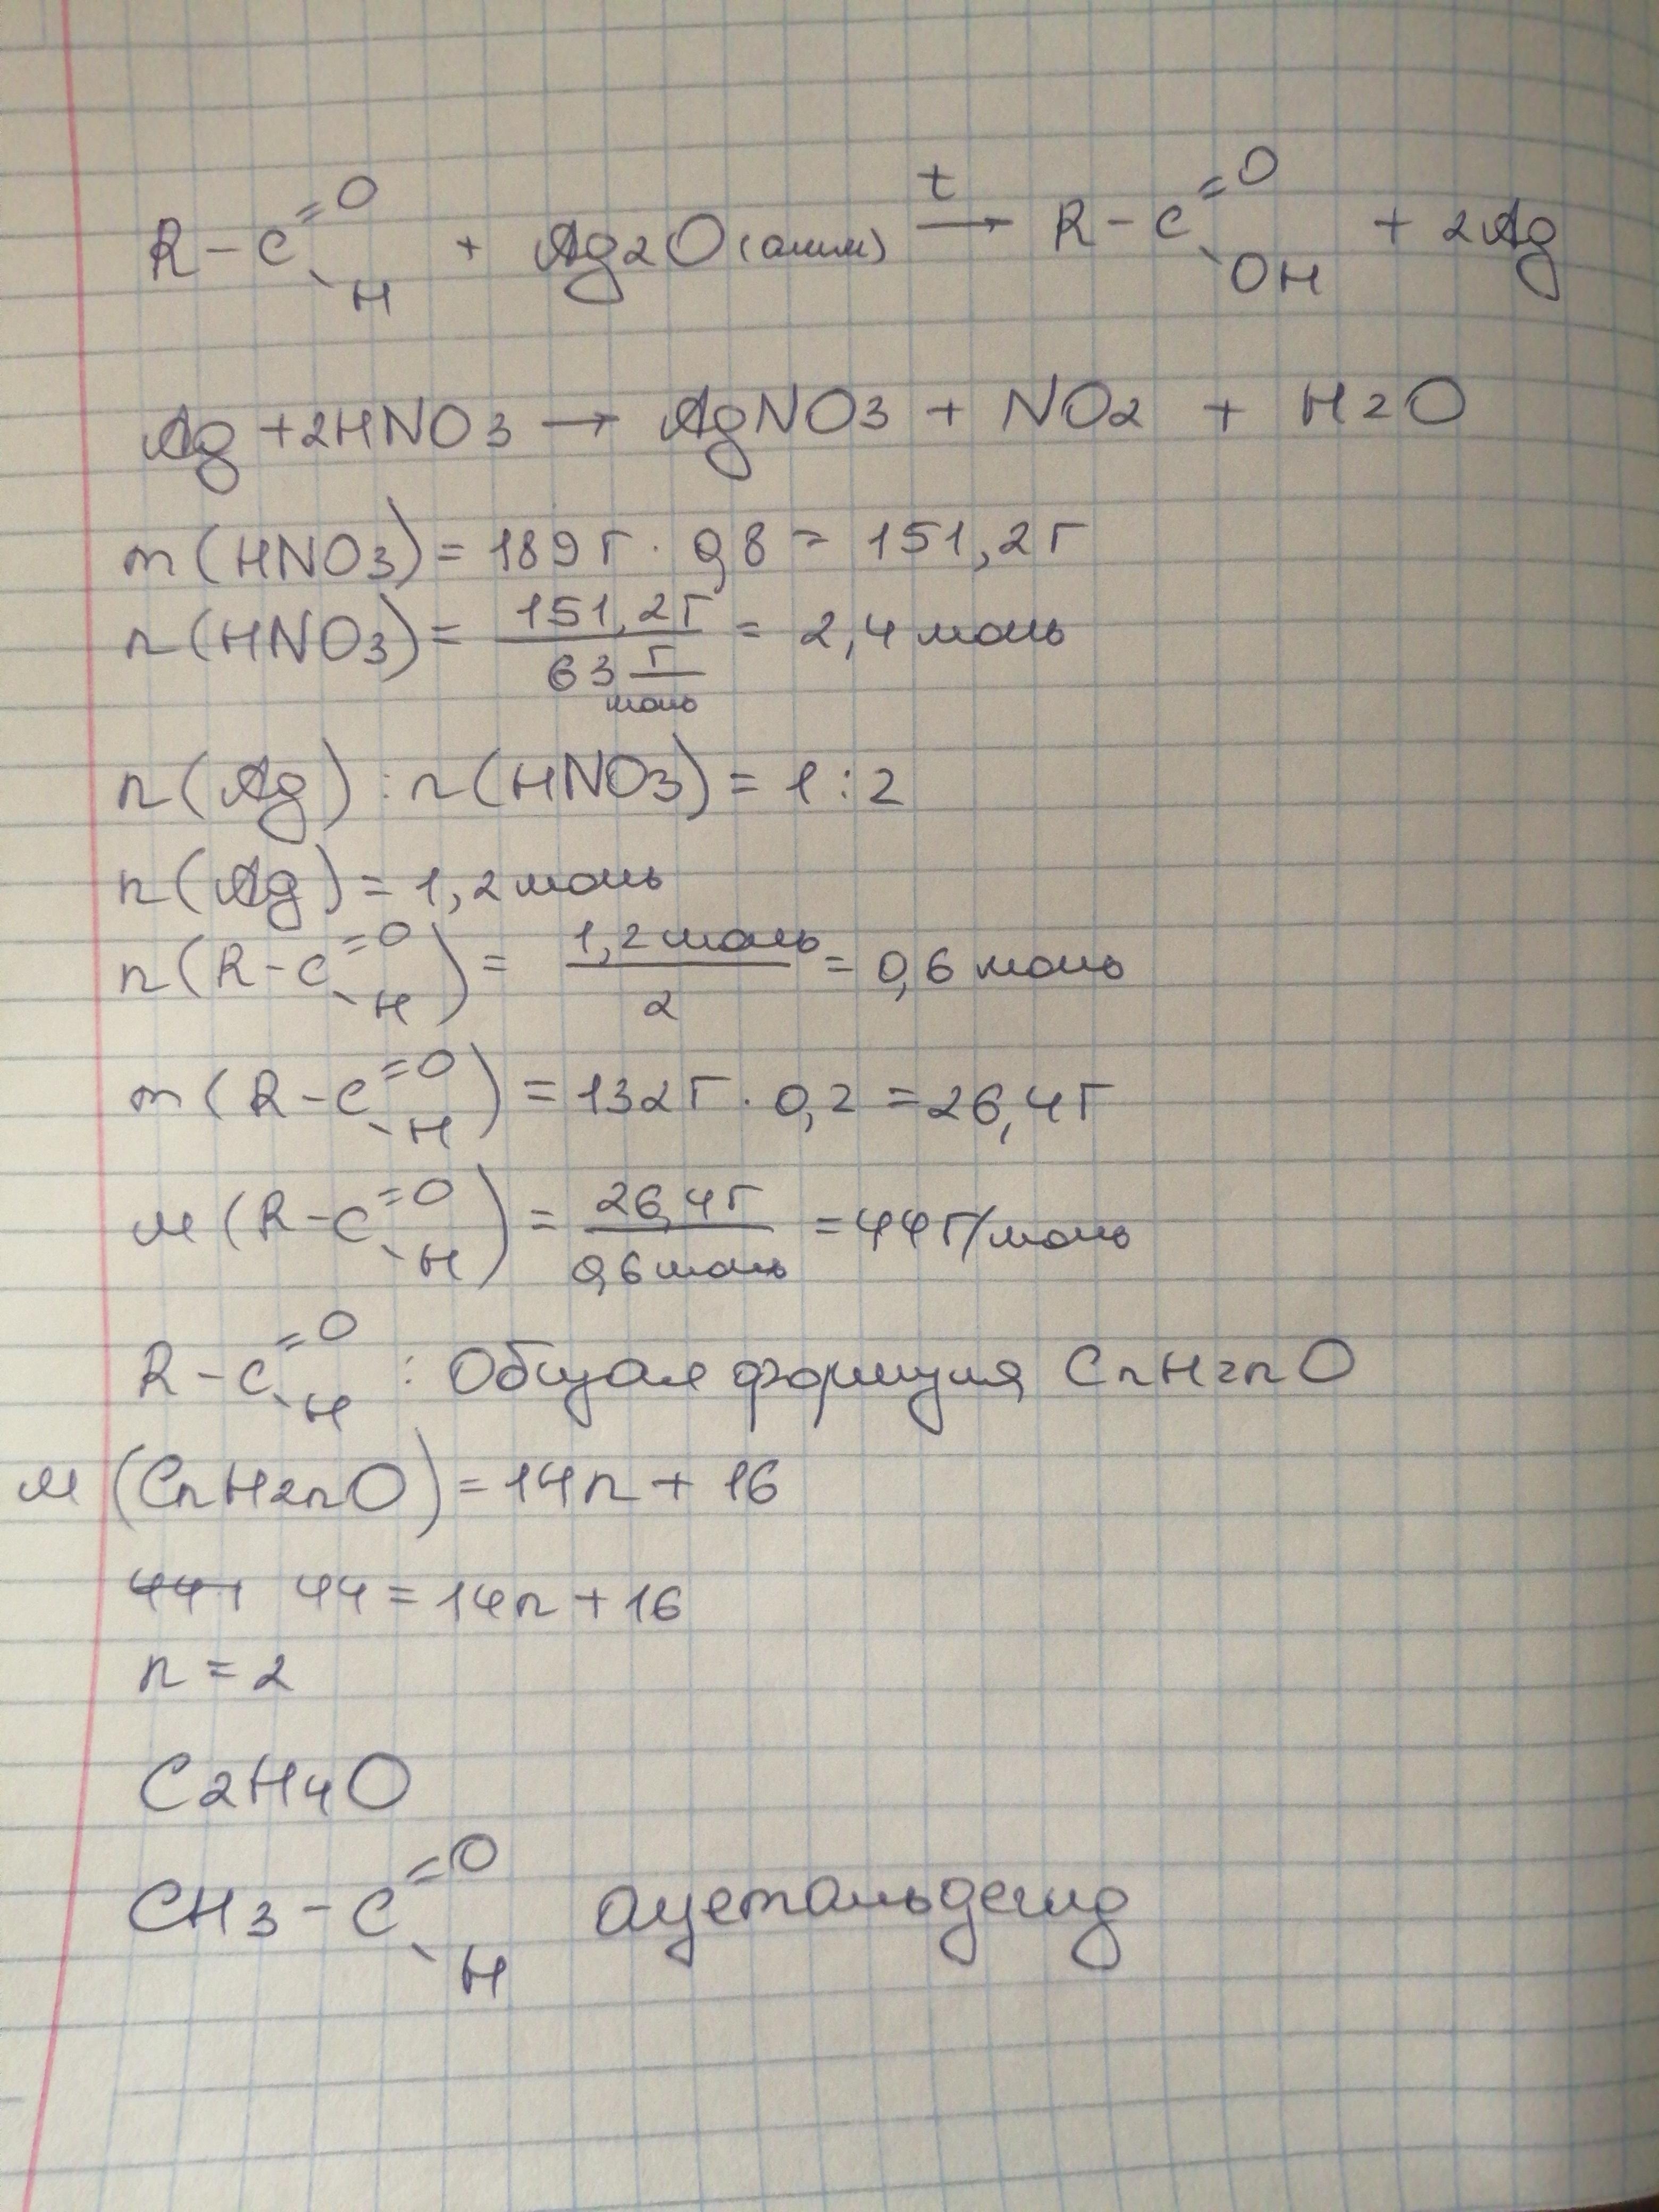 R-C=O-H + Ag2O(амм) t→ R-C=O-OH + 2Ag
Ag + 2HNO3 → AgNO3 + NO2 + H2O
m(HNO3) = 189г · 0,8 = 151,2г
n(HNO3) = 151,2г / 63 г/моль = 2,4 моль
n(Ag) : n(HNO3) = 1 : 2
n(Ag) = 1,2 моль
n(R-C=O-H) = 1,2 моль / 2 = 0,6 моль
m(R-C=O-H) = 132г · 0,2 = 26,4г
M(R-C=O-H) = 26,4г / 0,6 моль = 44г/моль
R-C=O-H : Общая формула CnH2nO
M(CnH2nO) = 14n + 16
44 = 14n + 16
n = 2
C2H4O
CH3-C=O-H ацетальдегид